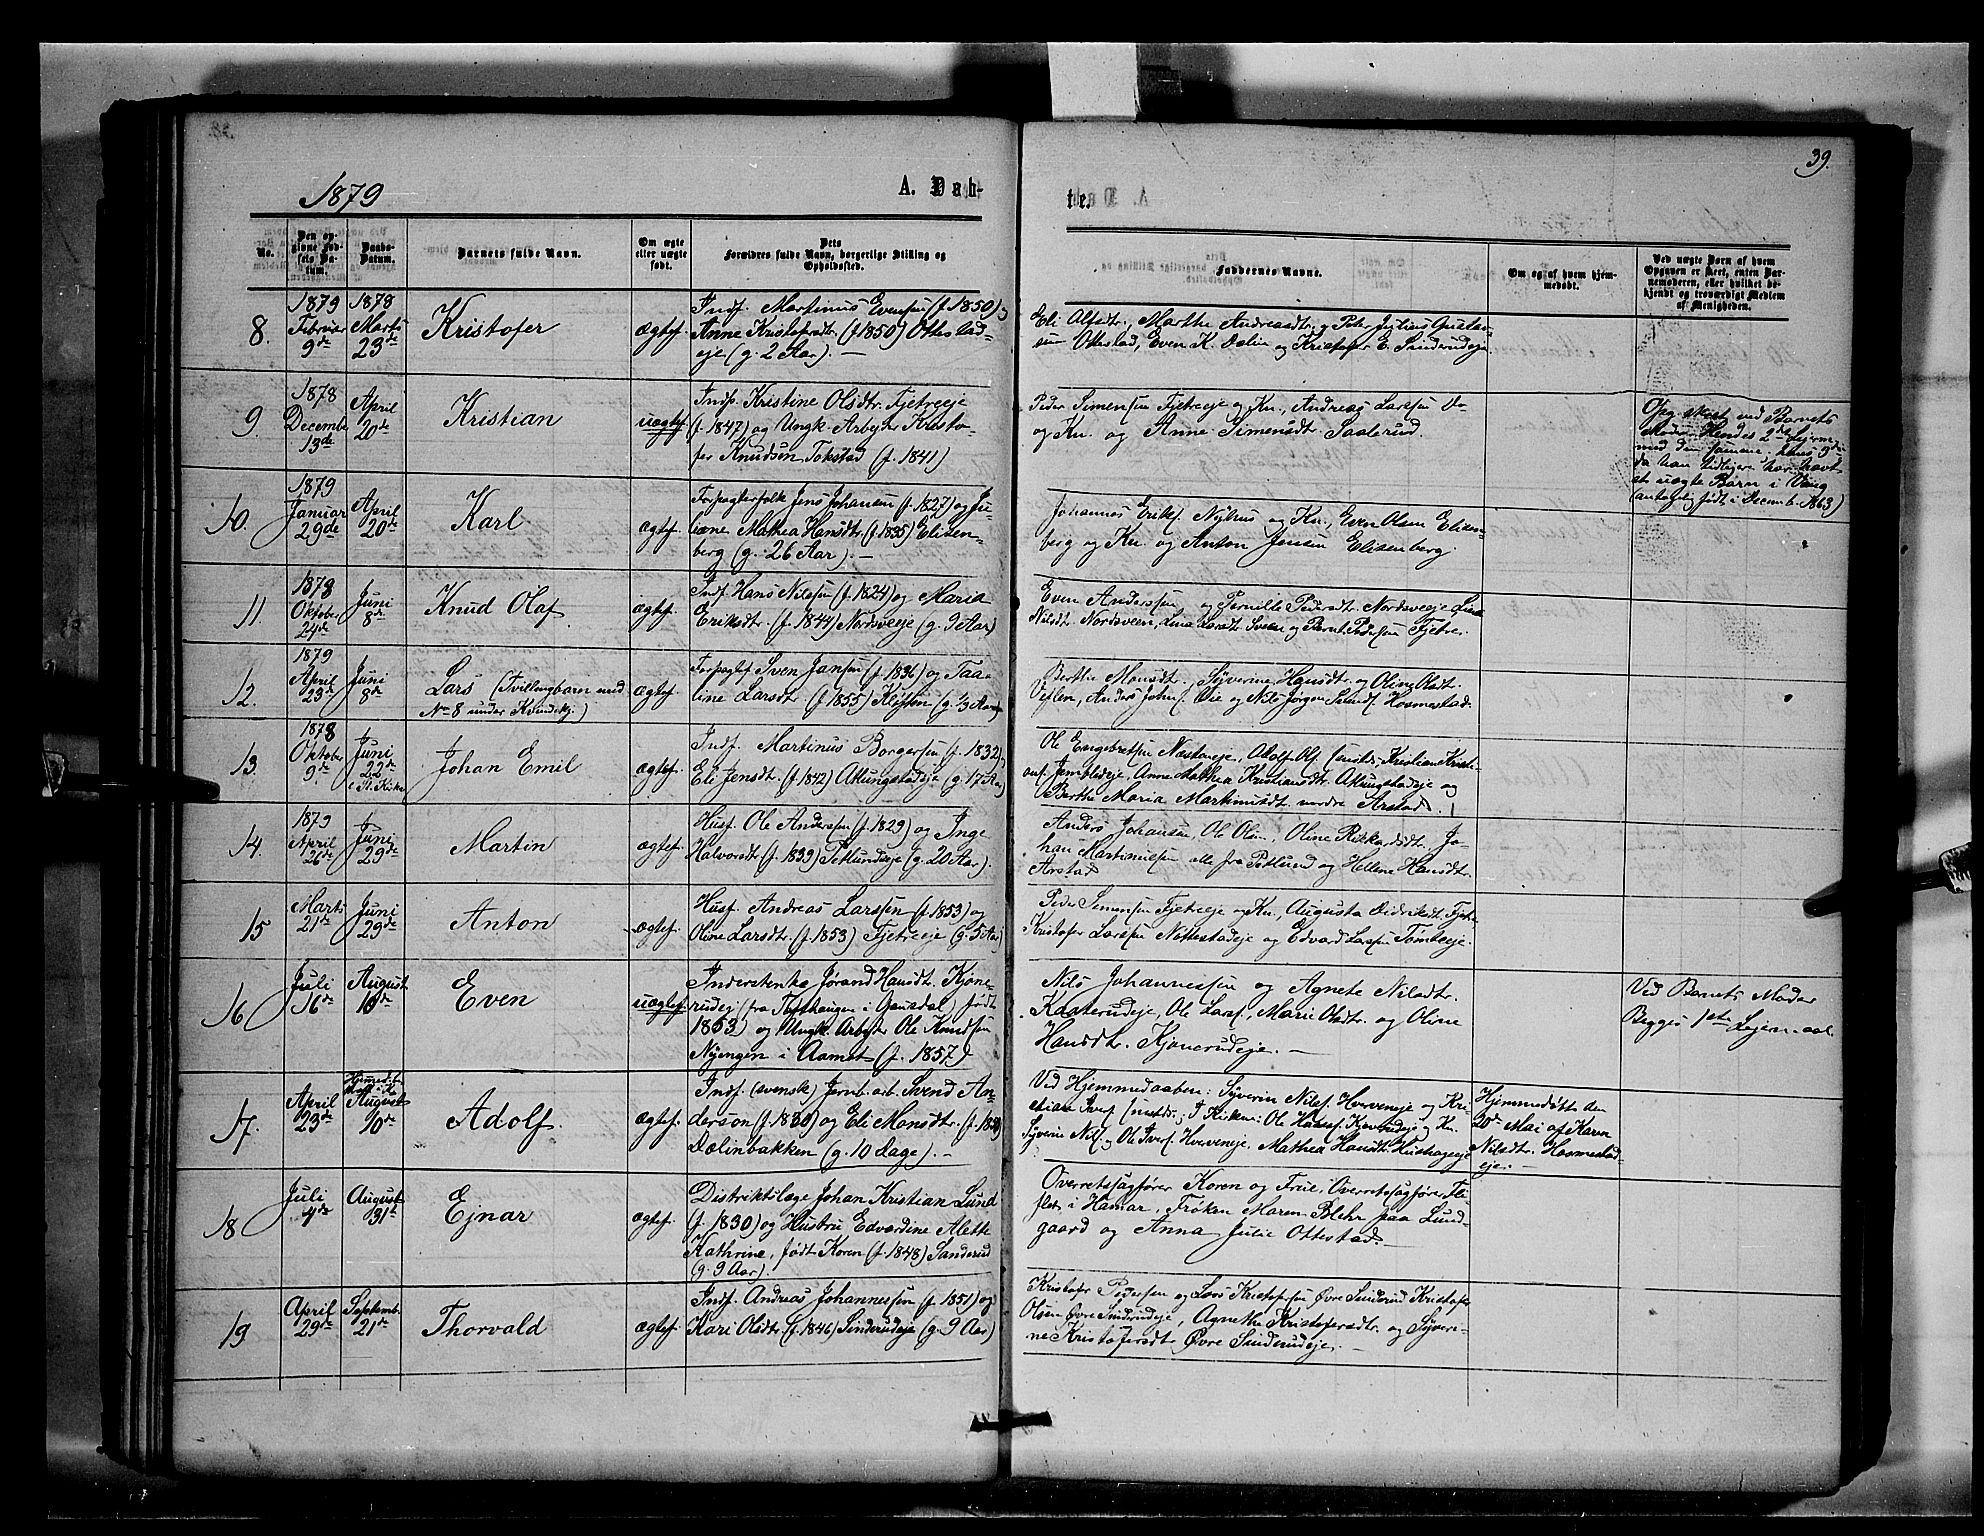 39.
1879
A. Døb-
te.
No.
Den op-
givne Fød-
sels Da-
tum.
Daabs-
Datum.
Barnets fulde Navn.
Om ægte
eller uægte
født.
Dets
Forældres fulde Navn, borgerlige Stilling og
Opholdssted.
Faddernes Navne.
Om og af hvem hjem-
medøbt.
Ved uægte Børn af hvem
Opgaven er skeet, enten Bar-
nemoderen, eller hvilket be-
kjendt og troværdigt Medlem
af Menigheden.
8.
1879
Februar
9de
1878
Marts
23de
Kristofer
ægtef.
Indf. Martinus Evensen (f. 1850) og
Anne Kristofersdtr. (f. 1850) Ottestads-
eje (g. 2 Aar). —
Eli Alfsdtr., Marthe Andreasdtr. og Peter Julius Gustav-
sen Ottestad, Even K. Dælin og Kristofer E. Sinderudeje.
9.
1878
Decembe
13de
April
20de
Kristian
uægtef
Indf. Kristine Olsdtr. Fjetreeje
(f. 1847) og Ungk. Arbejder Kristo-
fer Knudsen Tokstad (f. 1841)
Peder Simensen Fjetreeje og Kn., Andreas Larsen Do-
og Kn. og Anne Simensdt. Saalerud.
Opg. skeet ved Barnets
Moder. Hendes 2det Lejerm.
med den samme, hvis 9de
da han tidligere har havt
et uægte Barn i Vang
(antagelig født i Decemb. 1863)
10.
1879
Januar
29de
April
20de
Karl
ægtef.
Forpagterfolk Jens Johansen (f. 1827) og Ju-
liane Mathea Hansdtr. (f. 1835) Elisen-
berg (g. 26 Aar). —
Johannes Eriks. Nyhus og Kn., Even Olsen Elisen-
berg og Kn. og Anton Jensen Elisenberg.
11.
1878
Oktober
24de
Juni
8de
Knud Olaf
ægtef.
Indf. Hans Nilsen (f. 1824) og Maria
Eriksdtr. (f. 1844) Nordsveeje (g. 9 Aar)
Even Anderssen og Pernille Pedersdt. Nordsveeje, Lina
Nilsdt. Nordsveen, Lina Larsdt. Sveen og Bernt Pedersen Fjetre.
12.
1879
April
23de
Juni
8de
Lars (Tvillingbarn med
No 8 under Kvindekj.)
ægtef.
Forpagtf. Sven Jansen (f. 1836) og Paa-
line Larsdt. (f. 1855) Kløften (g. 1/3 Aar)
Berthe Monsdt., Syverine Hansdt. og Oline Olsdt.
Vejlen, Anders Johns. Øie og Nils Jørgen Svends. Hosmestad.
13.
1878
Oktober
9de
Juni
22de
i St. Kirke
Johan Emil
ægtef.
Indf. Martinus Borgersen (f. 1832)
Eli Jensdt. (f. 1842) Atlungstadeje (g. 17 Aar)
Ole Engebretsen Næstneje, Adolf Ols. Smids., Kristian Kristi-
ans. Jembledeje, Anne Mathea Kristiansdt. Atlungstadeje og
Berthe Maria Martinusdt. nordre Arstad.
14.
1879
April
26de
Juni
29de
Martin
ægtef.
Husf. Ole Andersen (f. 1829) og Inge
Halvorsdt. (f. 1839) Petlundeje (g. 20 Aar).
Anders Johansen, Ole Olsen, Oline Rikkardsdt., Jo-
han Martiniussen alle fra Petlund og Hellene Hansdtr.
Arstad
15
Marts
21de
Juni
29de
Anton
ægtef.
Husf. Andreas Larssen (f. 1853) og
Oline Larsdt. (f. 1853) Fjetreeje (g. 5 Aar)
Peder Simensen Fjetreeje og Kn., Augusta Didriksdt. Fjet.
Kristofer Larssen Nøttestadeje og Edvard Larssen Tomteeje.
16
Juli
16de
August
10de
Even
uægtef.
Inderstenke Jørand Hansdt. Kjøne-
rudeje (fra Tofthaugen i Gausdal) født
1853) og Ungk. Arbejder Ole Knudsen
Nyengen i Aamot (f. 1857)
Nils Johannessen og Agnete Nilsdtr.
Kaaterudeje, Ole Lars., Marie Olsdtr. og Oline
Hansdtr. Kjønerudeje. —
Ved Barnets Moder
Begges 1ste Lejermaal.
17.
April
23de
Hjemmedøbt
August
10de
Adolf.
ægtef.
Indf. (svensk) Jernb. arb. Svend An-
derson (f. 1830) og Eli Monsdtr. (f. 1839)
Dælinbakken (g. 10 Dage). —
Ved Hjemmedaaben: Syverin Nils. Herveneje og Kri-
stian Ivers. Smedst.; I Kirken: Ole Hanss. Kjønerudeje og Kn.
Syverin Nils. og Ole Ivers. Hverveneje. Mathea Hansdt. Hushageeje
Hjemmedøbt den
20de Mai af Karen
Nilsdtr. Hosmestad-
eje. —
18
Juli
4de
August
31te
Ejnar
ægtef.
Distriktslæge Johan Kristian Lund
(f. 1830) og Hustru Edvardine Alette
Kathrine, født Koren (f. 1848) Sanderud
(g. 9 Aar).
Overretssagfører Koren og Frue, Overretssagfører Fli-
flet, i Hamar, Frøken Maren Blehr paa Lund-
gaard og Anna Julie Ottestad. —
19
April
29de
Septemb.
21de
Thorvald
ægtef.
Indf. Andreas Johannessen (f. 1851) og
Kari Olsdtr. (f. 1846) Sinderudeje (g. 9 Aar)
Kristofer Pedersen og Lars Kristofersen Øvre Sinderud, Kristofer
Olsen Øvre Sinderudeje, Agnethe Kristofersdtr. og Syveri-
ne Kristofersdt. Øvre Sinderudeje. —